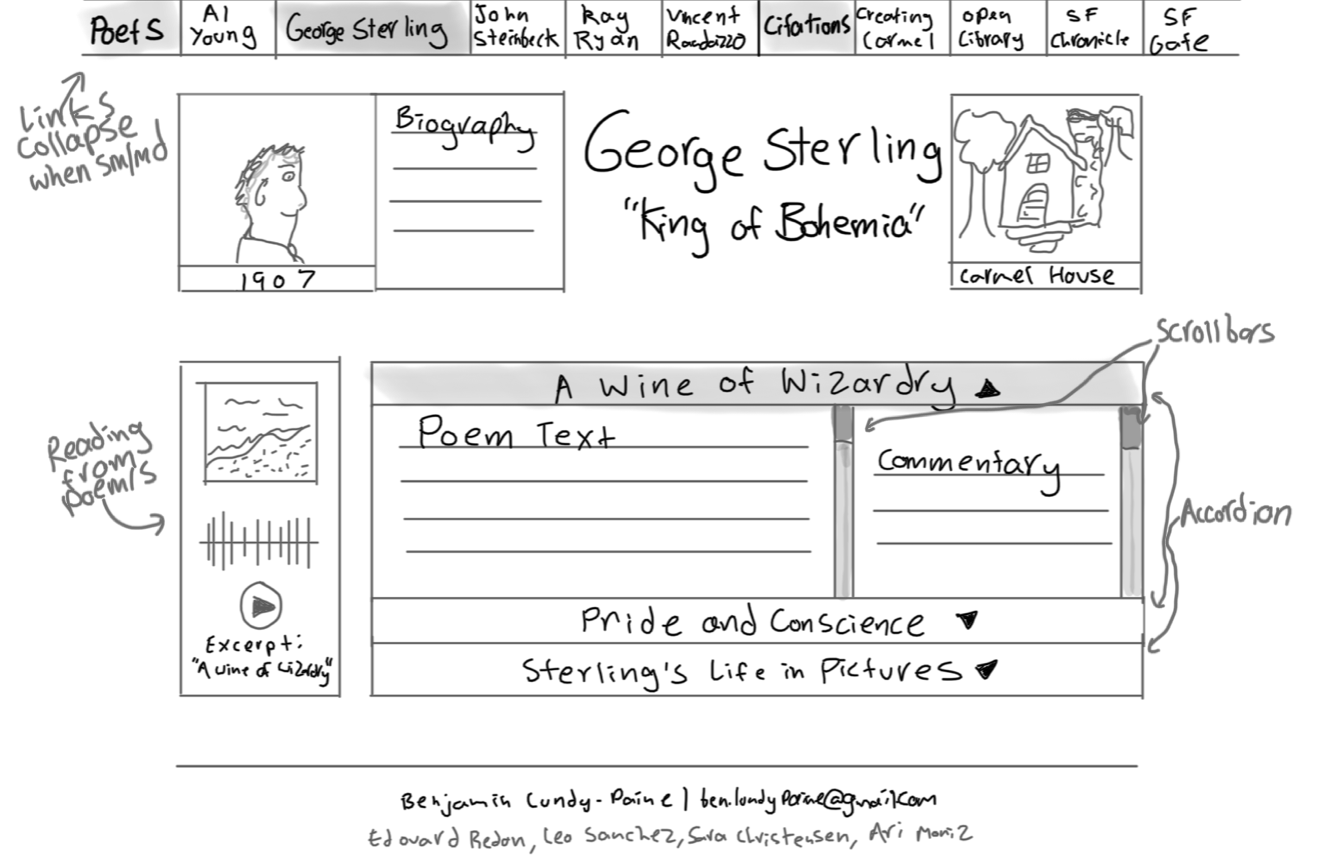 Poets
Al
Young
George Sterling
John
Steinbeck
Kay
Ryan
Vincent
Citations
Creating
Carmel
Open
Library
SF
Chronicle
SF
Gate
Links
collapse
when sm/md
Biography
1907
George Sterling
"King of Bohemia"
Carmel House
Scrollbars
Reading
from
poem/s
A Wine of Wizardry
Poem Text
Commentary
Accordion
Excerpt:
"A Wine of Wizardry"
Pride and Conscience
Sterling's Life in Pictures
Benjamin Lundy-Paine | ben.lundypaine@gmail.com
Edouard Redon, Leo Sanchez, Sara Christensen, Ari Moniz